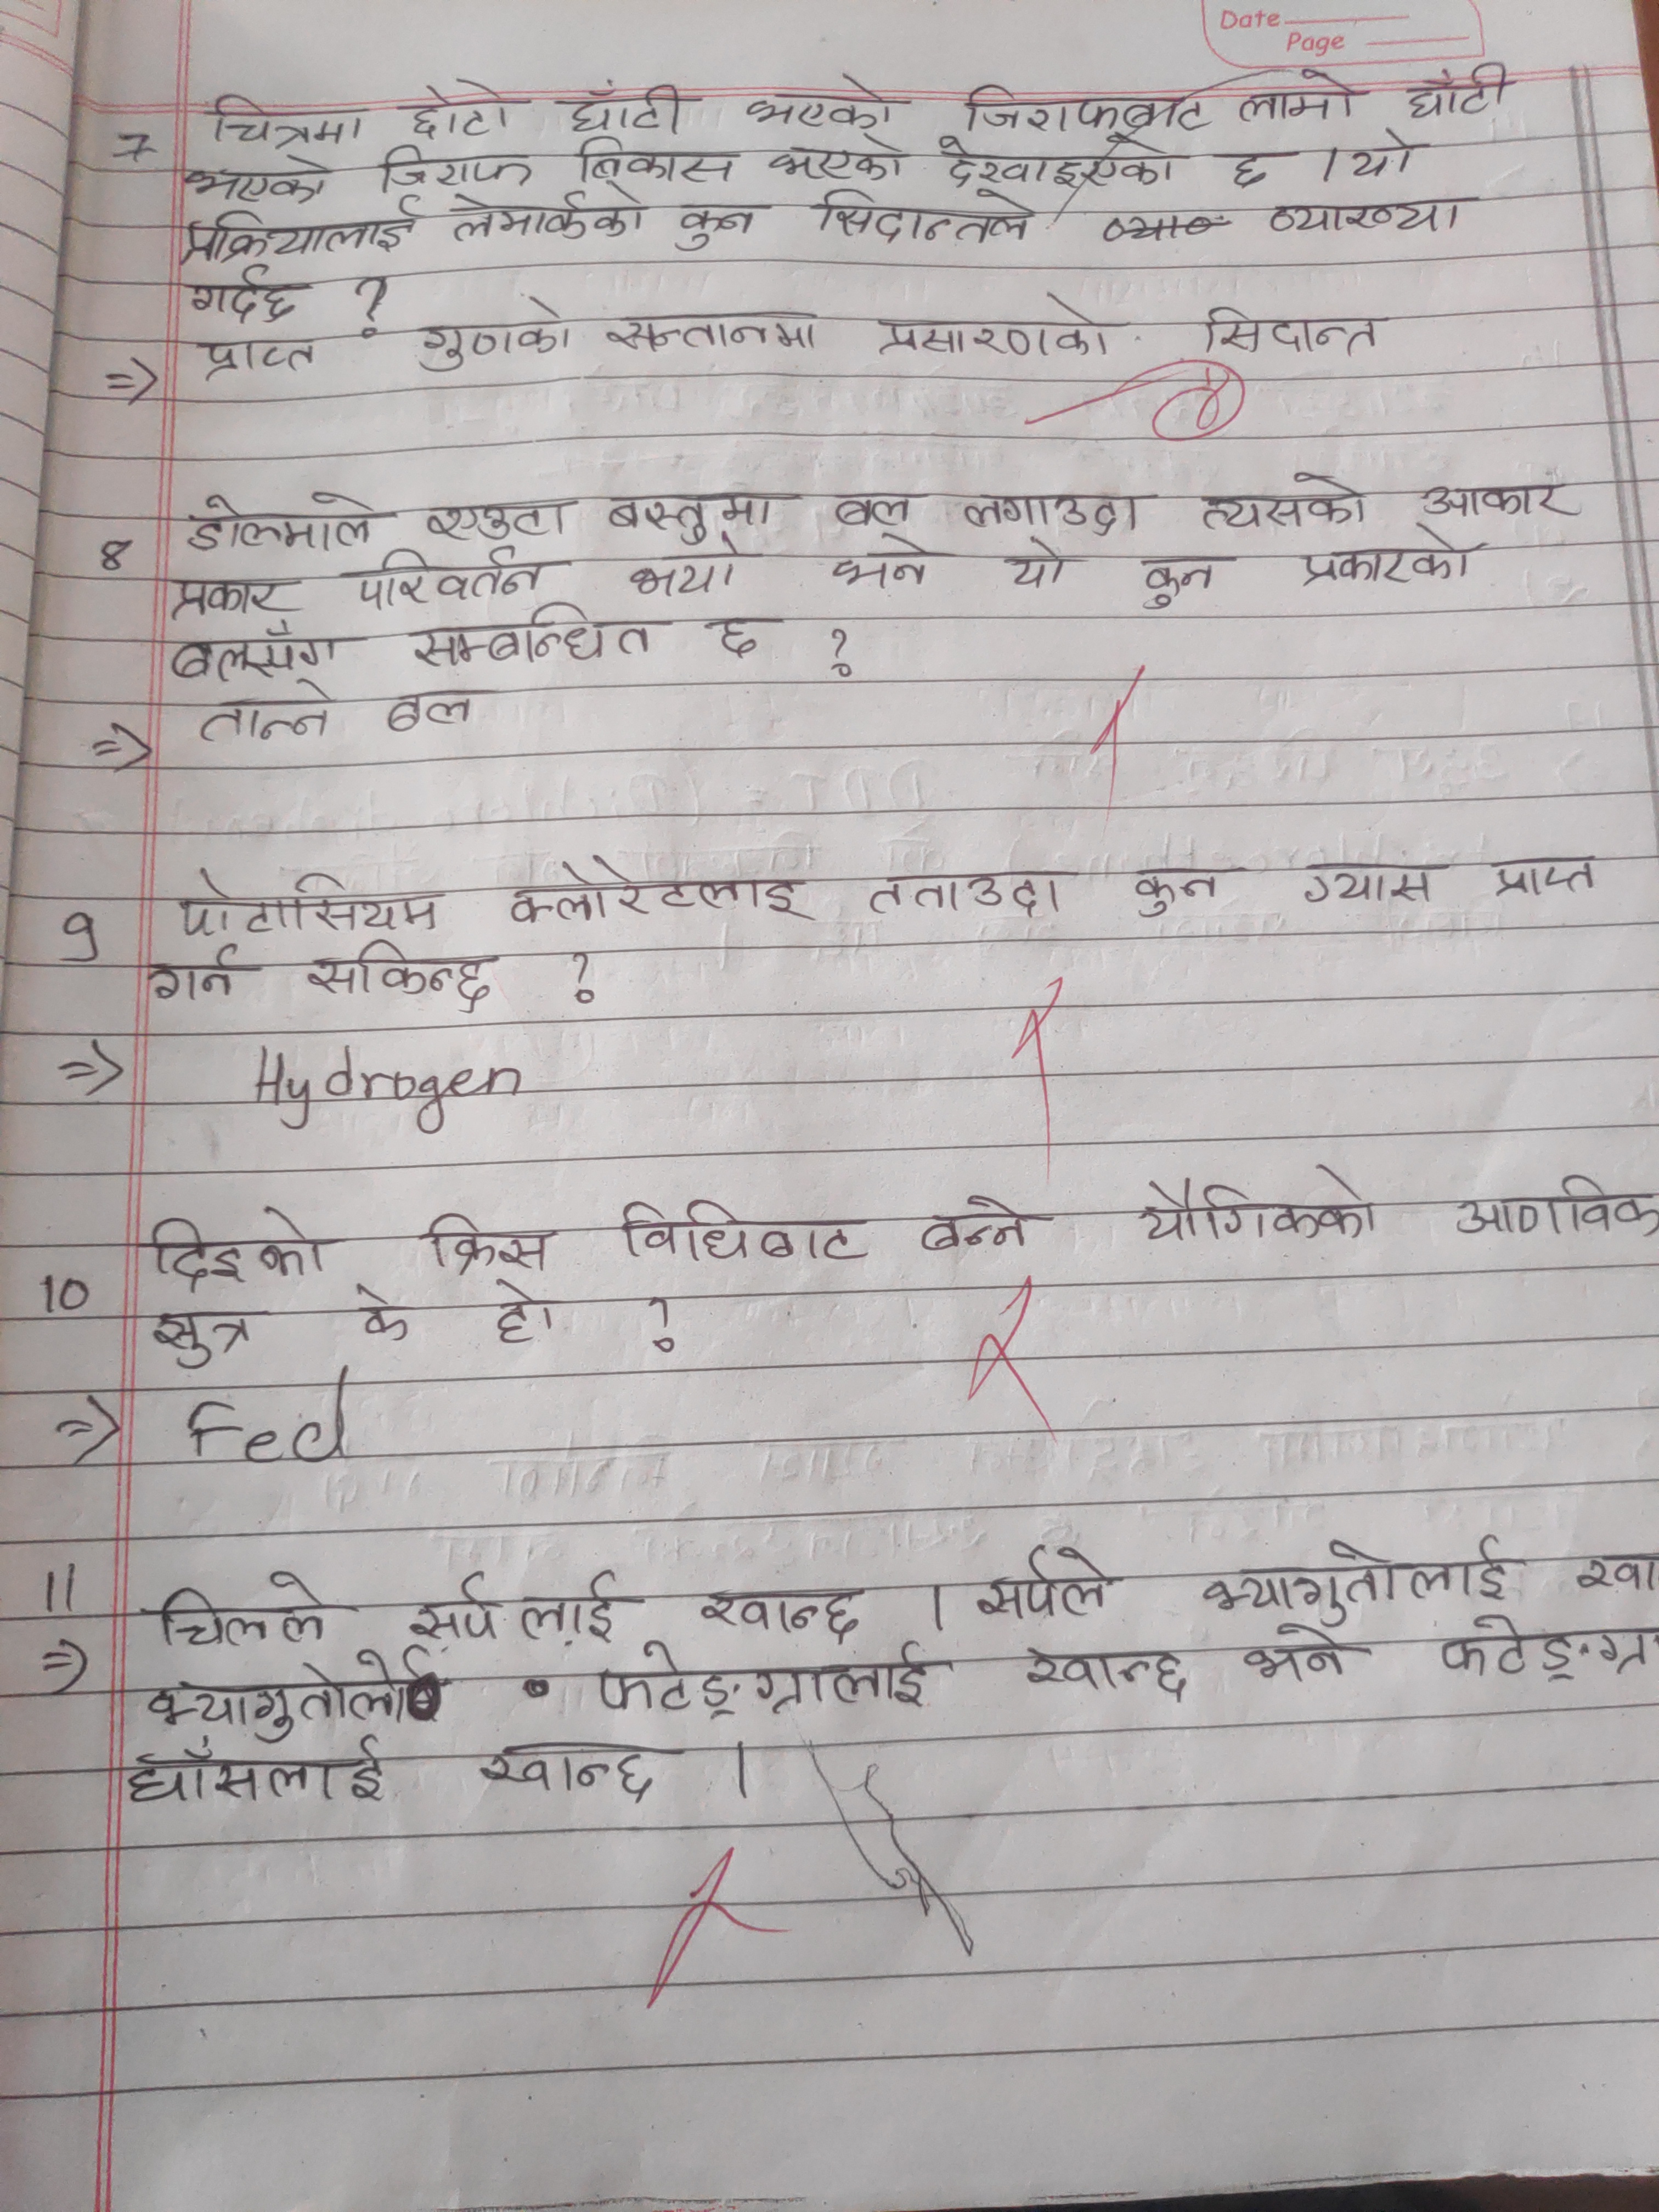 Date
Page
7 चित्रमा छोटो घाँटी भएको जिराफबाट लामो घाँटी
भएको जिराफ विकास भएको देखाइएको छ । यो
प्रक्रियालाई लेमार्कको कुन सिदान्तले व्याख्या
गर्दछ ?
=> प्राप्त गुणको सन्तानमा प्रसारणको सिदान्त
8 डोल्माले एउटा बस्तुमा बल लगाउदा त्यसको आकार
प्रकार परिवर्तन भयो भने यो कुन प्रकारको
बलसँग सम्बन्धित छ ?
=> तान्ने बल
9 पोटासियम क्लोरेटलाइ तताउदा कुन ग्यास प्राप्त
गर्न सकिन्छ ?
=> Hydrogen
10 दिइको क्रिस विधिबाट बन्ने यौगिकको आणविक
सुत्र के हो ?
=> Fecl
11 चिलले सर्पलाई खान्छ । सर्पले भ्यागुतोलाई खा
=> भ्यागुतोले फटेङ्ग्रालाई खान्छ भने फटेङ्ग्र
घाँसलाई खान्छ ।